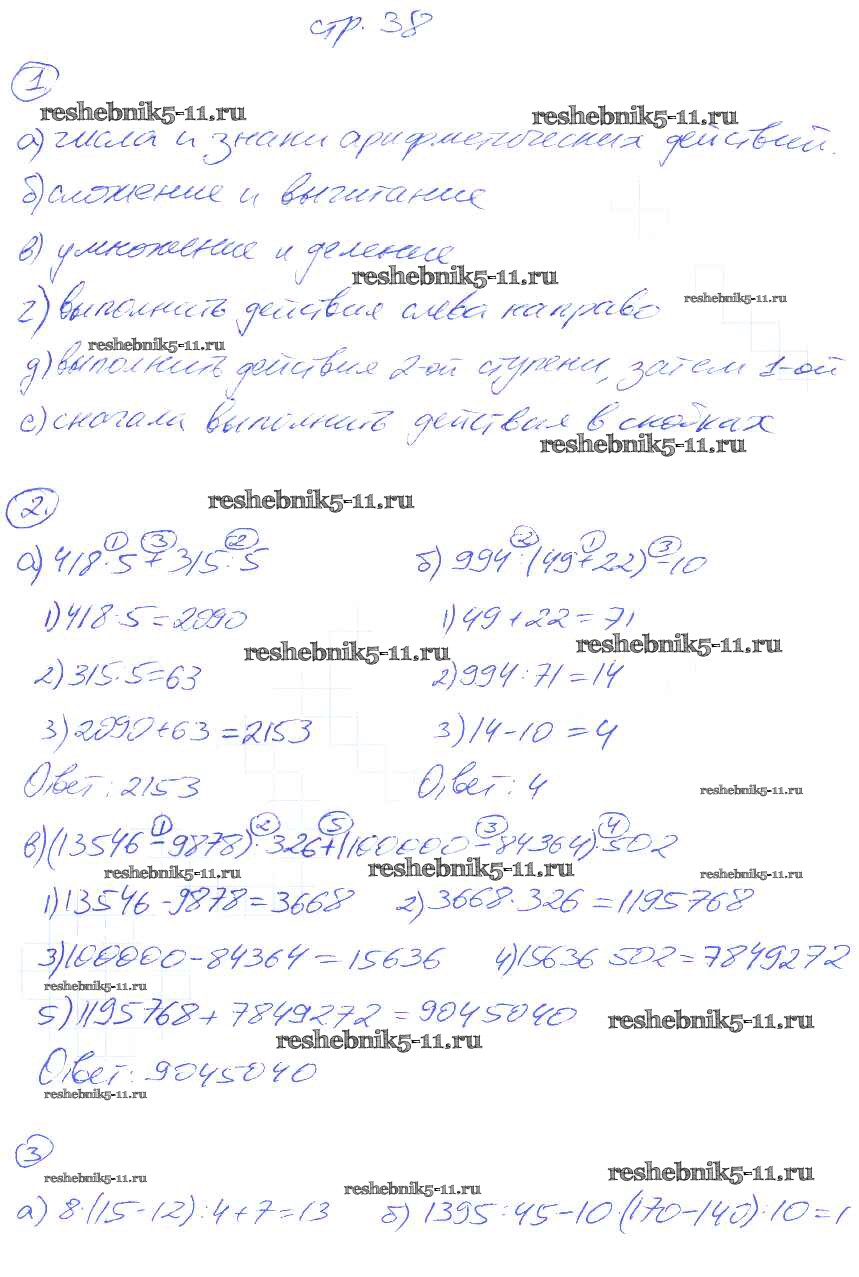 стр. 38
1
reshebnik5-11.ru reshebnik5-11.ru
а) числа и знаки арифметических действий.
б) сложение и вычитание
в) умножение и деление
reshebnik5-11.ru
г) выполнить действия слева направо
reshebnik5-11.ru
reshebnik5-11.ru
д) выполнить действия 2-ой ступени, затем 1-ой
е) сначала выполнить действия в скобках
reshebnik5-11.ru
2. reshebnik5-11.ru
1 3 2 2 1 3
а) 418·5+315:5 б) 994:(49+22)-10
1) 418·5=2090 1) 49+22=71
reshebnik5-11.ru reshebnik5-11.ru
2) 315:5=63 2) 994:71=14
3) 2090+63=2153 3) 14-10=4
Ответ: 2153 Ответ: 4
reshebnik5-11.ru
1 2 5 3 4
в) (13546-9878)·326+(100000-84364)·502
reshebnik5-11.ru reshebnik5-11.ru reshebnik5-11.ru
1) 13546-9878=3668 2) 3668·326=1195768
3) 100000-84364=15636 4) 15636 502=7849272
reshebnik5-11.ru
5) 1195768+7849272=9045040
reshebnik5-11.ru reshebnik5-11.ru
Ответ: 9045040
reshebnik5-11.ru
3
reshebnik5-11.ru reshebnik5-11.ru
reshebnik5-11.ru
а) 8·(15-12):4+7=13 б) 1395:45-10·(170-140):10=1